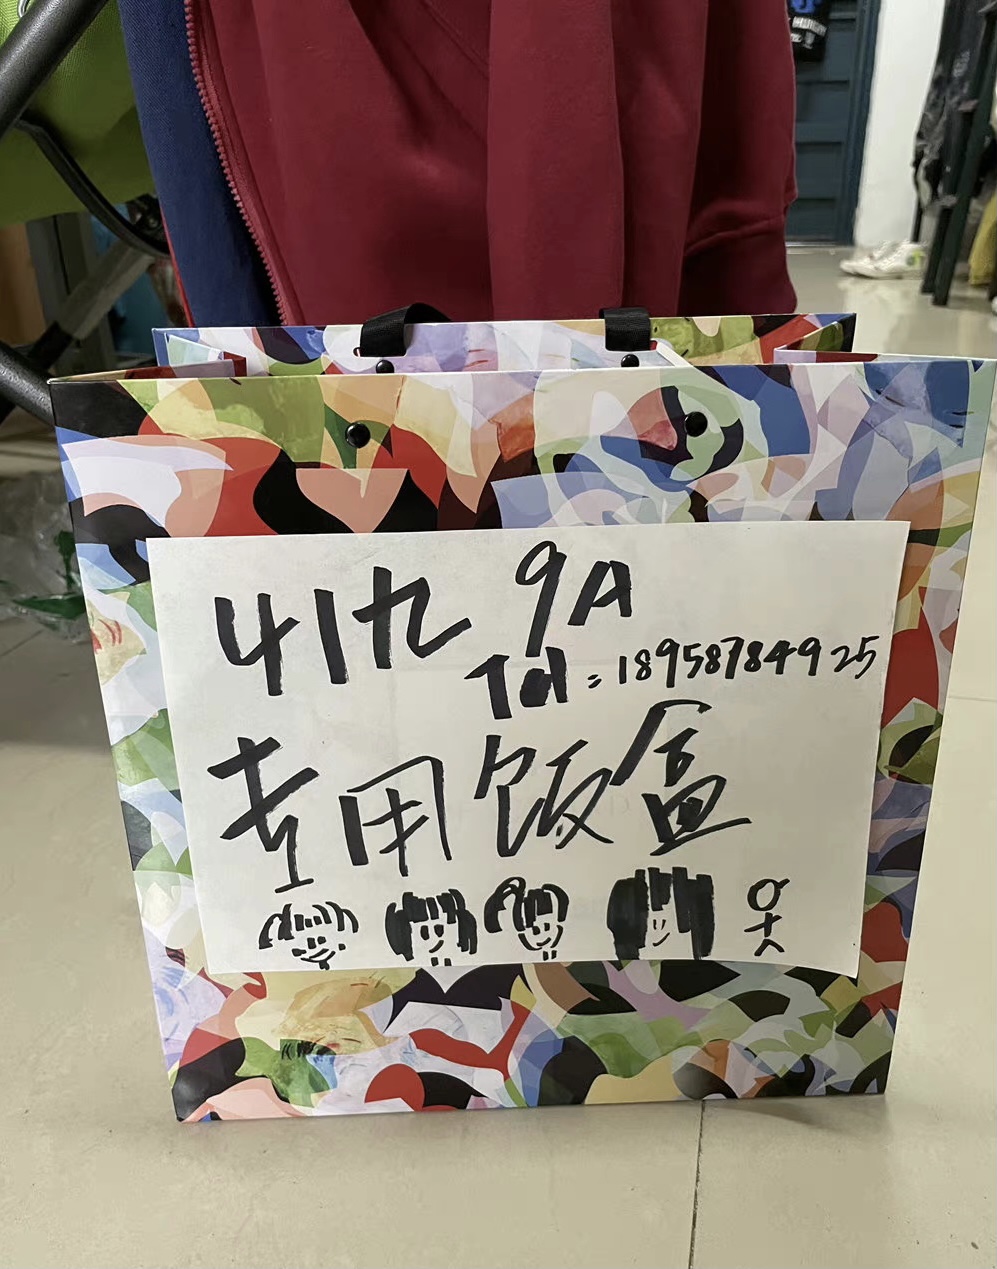 41九 9A
Tel:18958784925
专用饭盒